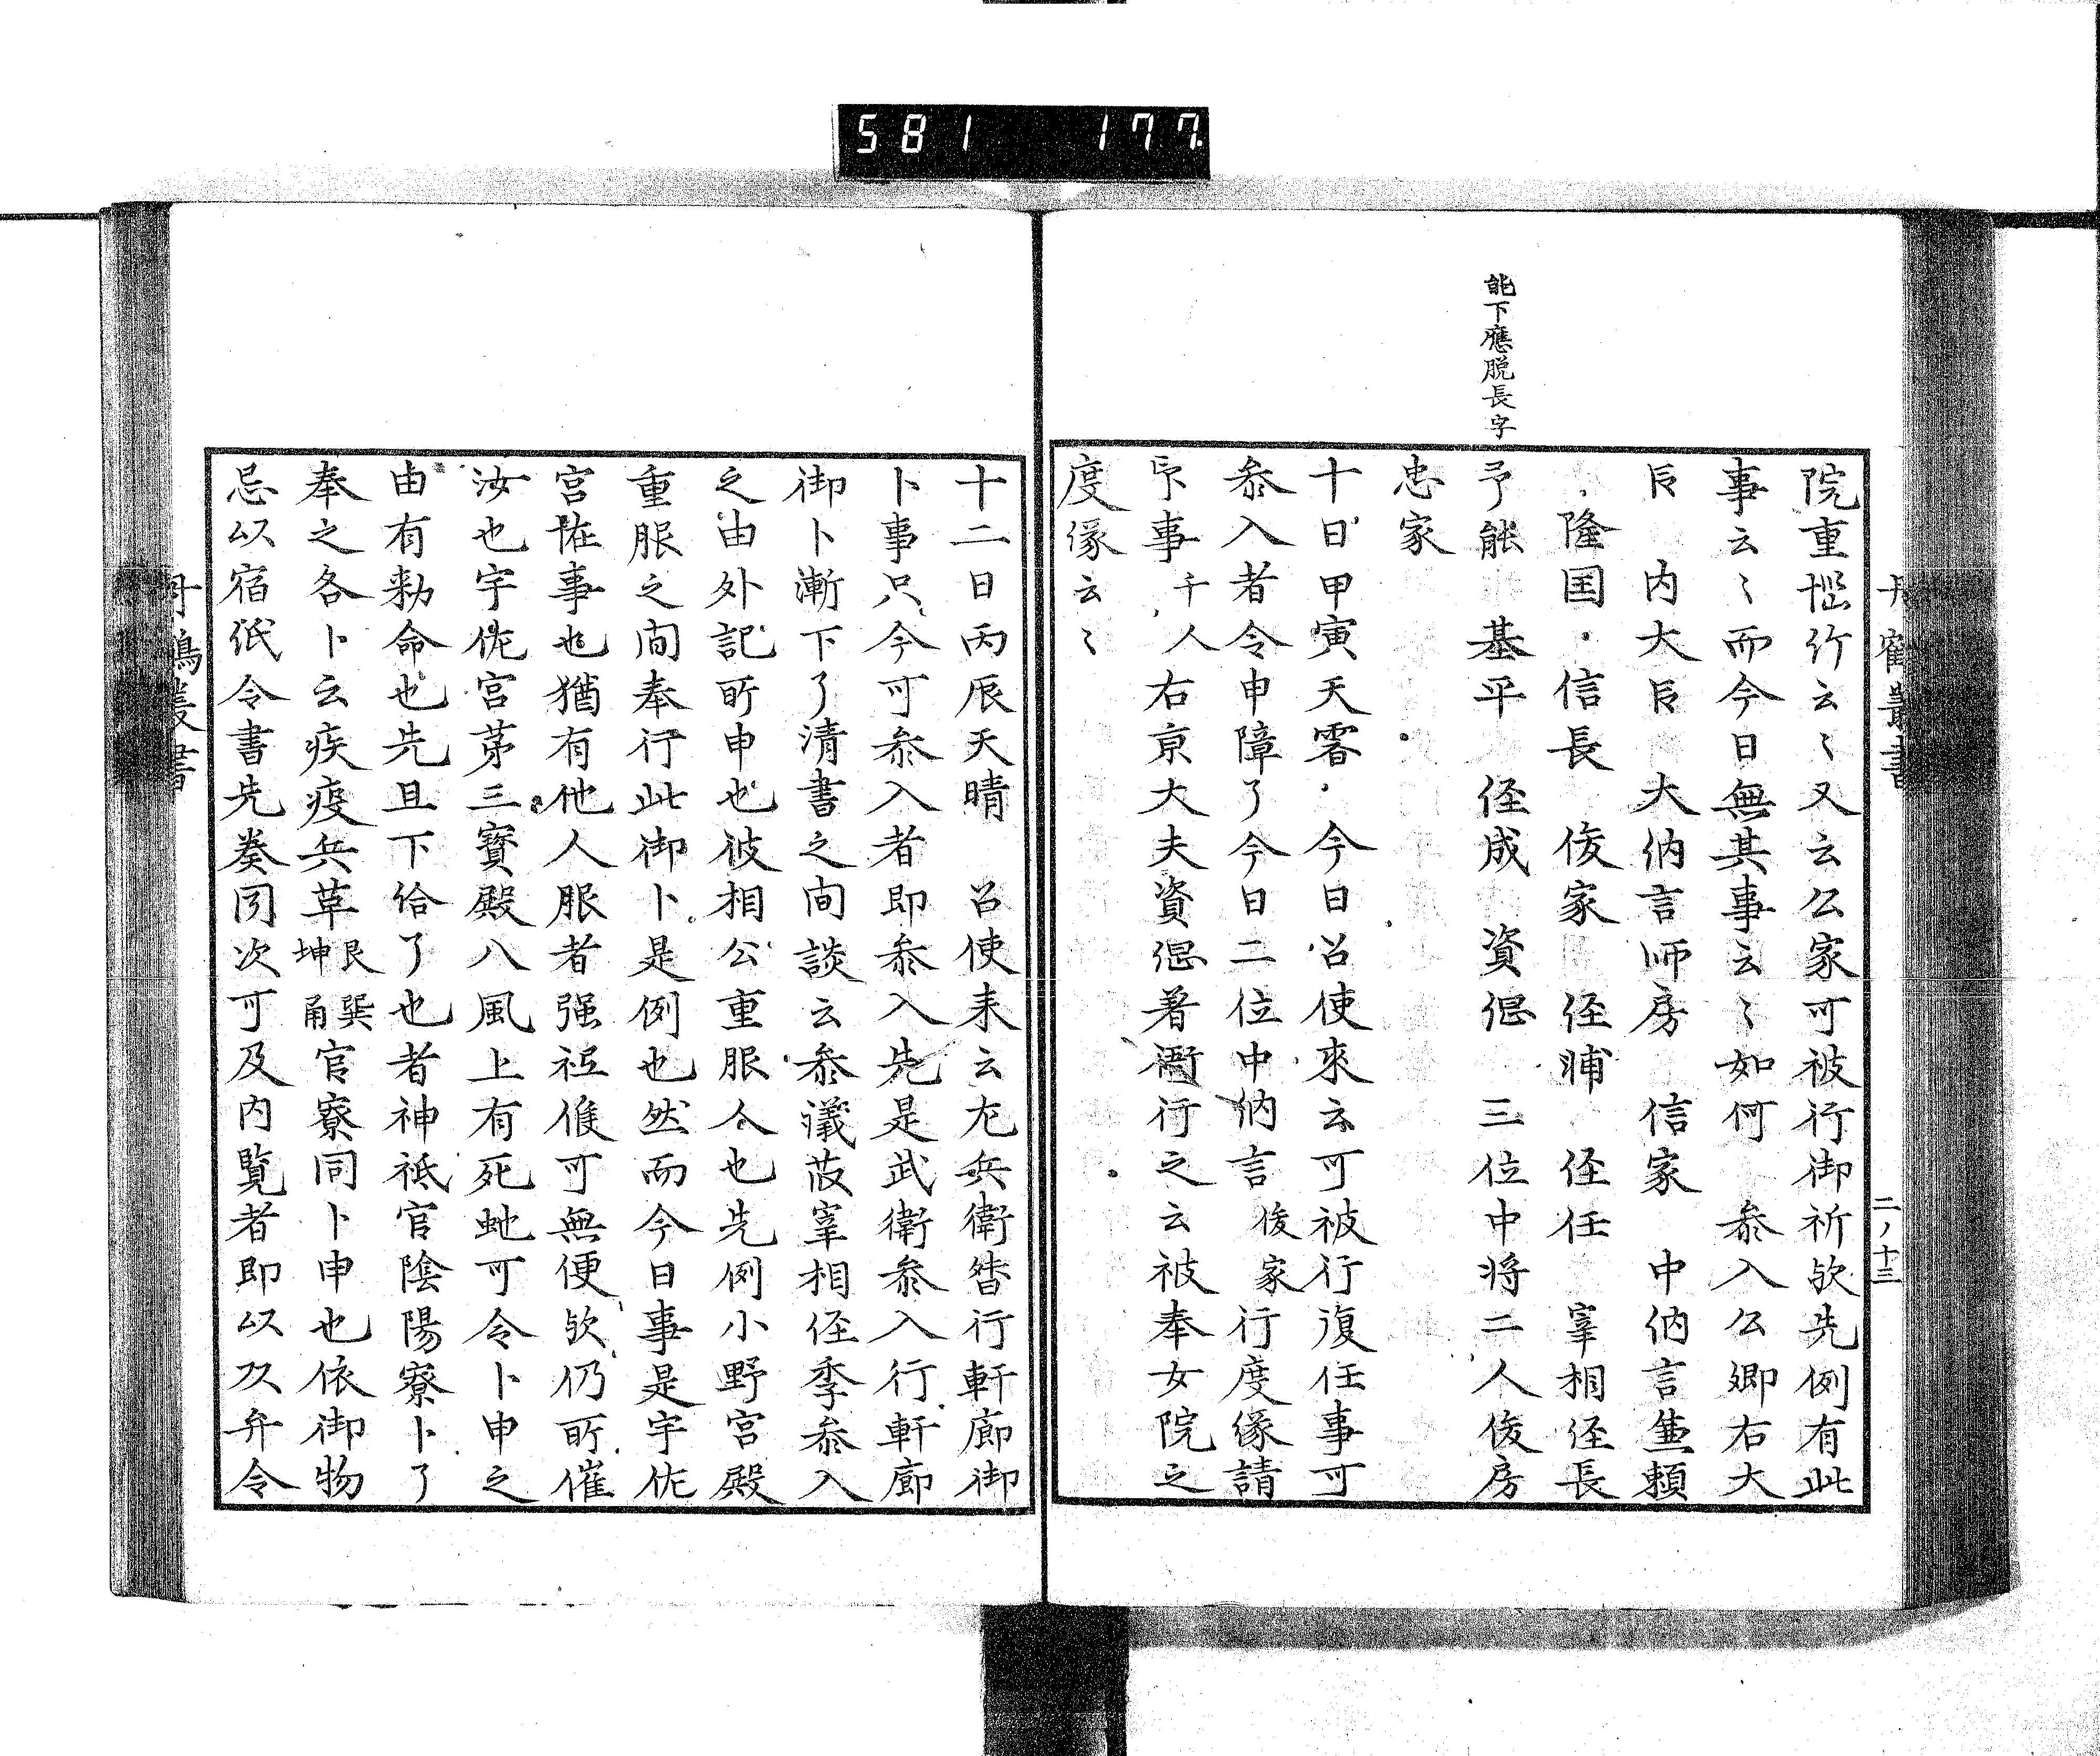 581 177
丹鶴叢書
二ノ十三
能下應脱長字
院重惱給云〻又云公家可被行御祈欤先例有此
事云〻而今日無其事云〻如何 参入公卿右大
臣 内大臣 大納言師房 信家 中納言兼頼
隆国 信長 俊家 経輔 経任 宰相経長
予能 基平 経成 資仲 三位中将二人俊房
忠家
十日甲寅天霽今日召使來云可被行復任事可
参入者令申障了今日二位中納言俊家行度縁請
印事千人右京大夫資仲著行之云被奉女院之
度縁云〻
十二日丙辰天晴 召使来云左兵衛督行軒廊御
卜事只今可参入者即参入先是武衛参入行軒廊
御卜漸下了清書之間談云参議故宰相経季参入
之由外記所申也彼相公重服人也先例小野宮殿
重服之間奉行此御卜是例也然而今日事是宇佐
宮恠事也猶有他人服者强祗候可無便欤仍所催
汝也宇佐宮苐三寳殿八風上有死虵可令卜申之
由有勅命也先且下給了也者神祗官陰陽寮卜了
奉之各卜云疾疫兵革艮坤巽角官寮同卜申也依御物
忌以宿紙令書先奏囙次可及内覧者即以双弁令
丹鶴叢書